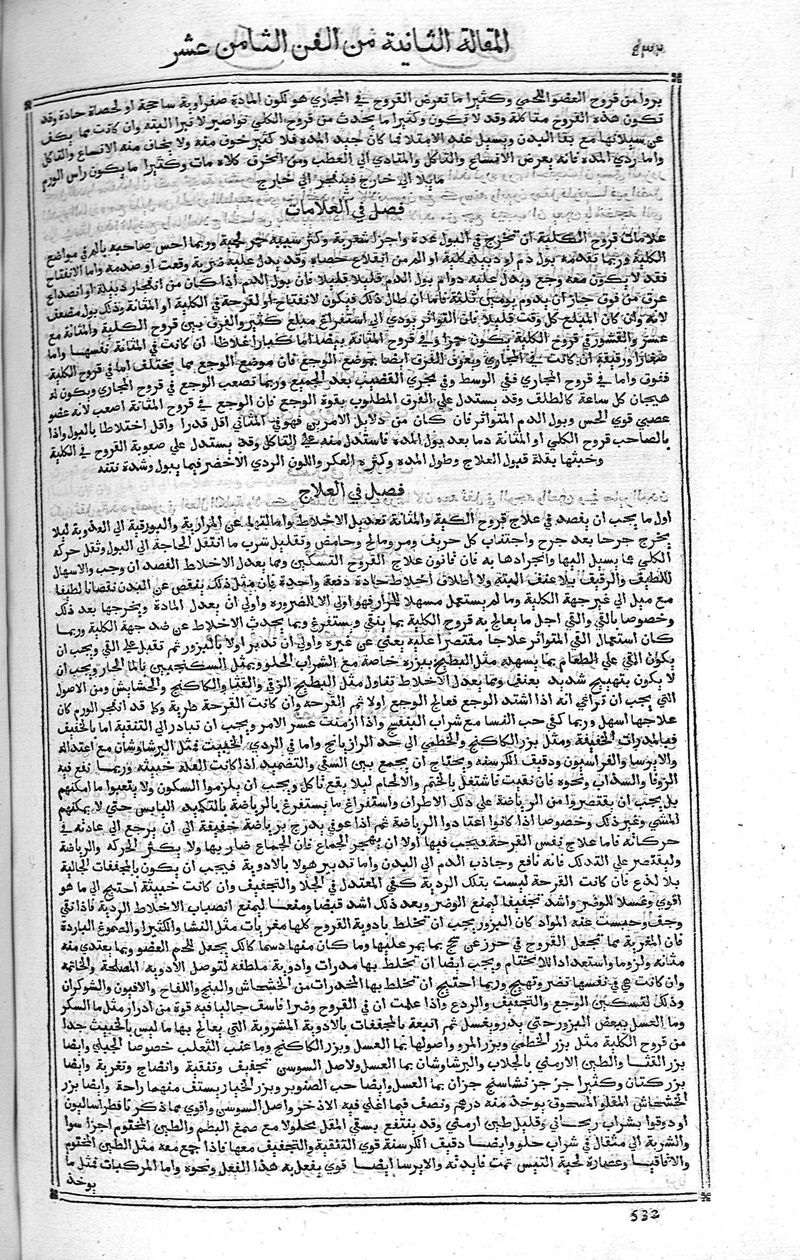 المقالة الثانية من الفن الثامن عشر
بروا من قروح العضو اللحمي وكثيرا ما تعرض القروح في المجاري هو لكون المادة صفراوية ساحجة او لحصاة حادة وقد
تكون هذه القروح متاكلة وقد لا تكون وكثيرا ما يحدث من قروح الكلي نواصير لا تبرا البتة وان كانت مما يكف
عن سيلانها مع نقا البدن ويسيل عند الامتلا فما كان جيد المده فلا كثير خوف منه ولا يخاف منه الاتساع والتاكل
واما ردي المده فانه يعرض الاتساع والتاكل والمتادي الي العطب ومن انخرق كلاه مات وكثيرا ما يكون راس الورم
مايلا الي خارج فينفجر الي خارج
فصل في العلامات
علامات قروح الكلية ان تخرج في البول مدة واجزا شعرية وكثر سيبه حمر لحمية وربما احس صاحبه بالم في مواضع
الكلية وربما تقدمه بول دم او دبيلة كلية او الم من انقلاع حصاه وقد يدل عليه ضربة وقعت او صدمة واما الانفتاح
فقد لا يكون معه وجع ويدل عليه دوام بول الدم قليلا قليلا فان بول الدم اذا كان من انفجار دبيلة او انصداع
عرق من فوق جاز ان يدوم يومين ثلثة فاما ان طال ذلك فيكون لانفتاح او لقرحة في الكلية او المثانة وذلك بول مضعف
لانه وان كان المبلغ كل وقت قليلا فان التواتر يودي الي استفراغ مبلغ كثير والفرق بين قروح الكلية والمثانة مع
عسر والقشور في قروح الكلية يكون حمرا وفي قروح المثانة بيضا اما كبارا غلاظا ان كانت في المثانة نفسها واما
صغارا رقيقة ان كانت في المجاري ويعرف الفرق ايضا بموضع الوجع فان موضع الوجع مما يختلف اما في قروح الكلية
ففوق واما في قروح المجاري ففي الوسط وفي مجري القضيب بعد الجميع وربما تصعب الوجع في قروح المجاري ويكون له
هيجان كل ساعة كالطلف وقد يستدل علي الفرق المطلوب بقوة الوجع فان الوجع في قروح المثانة اصعب لانه عضو
عصبي قوي الحس وبول الدم المتواتر فان كان من دلايل الامرين فهو في المثاني اقل قدرا واقل اختلاطا بالبول واذا
بالصاحب قروح الكلي او المثانة دما بعد بول المده فاستدل منه علي التاكل وقد يستدل علي صعوبة القروح في الكلية
وخبثها بقلة قبول العلاج وطول المده وكثرة العكر واللون الردي الاخضر فيما يبول وشدة نتنه
فصل في العلاج
اول ما يجب ان يقصد في علاج قروح الكلية والمثانة تعديل الاخلاط وامالتها عن المرارية والبورقية الي العذوبة ليلا
يخرج جرحا بعد جرح واجتناب كل حريف ومر ومالح وحامض وتقليل شرب ما انقفل الحاجة الي البول وتقل حركه
الكلي بما يسيل اليها وانجرادها به فان قانون علاج القروح التسكين ومما يعدل الاخلاط الفصد ان وجب والاسهال
اللطيف والرقيق بلا عنف البتة ولا اطلاق اخلاط حادة دفعة واحدة فان مثل ذلك ينقص عن البدن نقصانا لطيفا
مع ميل الي غير جهة الكلية وما لم يستعمل مسهلا للمرار فهو اولي الا للضرورة واولي ان يعدل المادة ويخرجها بعد ذلك
وخصوصا بالقي والقي اجل ما يعالج به قروح الكلية بما ينقي ويستفرغ وبما يجذب الاخلاط عن ضد جهة الكلية وربما
كان استعمال القي المتواتر علاجا مقتصرا عليه يغني عن غيره واولي ان تدبر اولا بالبزور ثم تقبل علي القي ويجب ان
يكون القي علي الطعام بما يسهله مثل البطيخ ببزره خاصة مع الشراب الحلو ويمثل السكنجبين بالما الحار ويجب ان
لا يكون بتهييج شديد يعنفي ومما يعدل الاخلاط تناول مثل البطيخ الرقي والقثا والكاكنج والخشخاش ومن الاصول
التي يجب ان تراعي انه اذا اشتد الوجع فعالج الوجع اولا ثم القرحه وان كانت القرحة طرية وكما قد انفجر الورم كان
علاجها اسهل وربما كفي حب القسا مع شراب البنفسج واذا ازمنت عسر الامر ويجب ان تبادر الي التنقية اما بالخفيف
فبالمدرات الخفيفة ومثل بزر الكاكنج والخطمي الي حد الرازيانج واما في الردي الخبيث فمثل البرشاوشان مع اعتداله
والايرسا والفراسيون ودقيق الكرسنه ويحتاج ان يجمع بين السقي والتضميد اذا كانت العلة خبيثه وربما نفع فيه
الزوفا والسذاب ونحوه فان نقيت فاشتغل بالختم والالحام ليلا يقع تاكل ويجب ان يلزموا السكون ولا يتعبوا ما امكنهم
بل يجب ان يقتصروا من الرياضة علي دلك الاطراف واستفراغ ما يستفرغ بالرياضة بالتكميد اليابس حتي لا يمكنهم
المشي وغير ذلك وخصوصا اذا كانوا اعتادوا الرياضة ثم اذا عوفي يدرج برياضة خفيفة الي ان يرجع الي عادته في
حركاته فاما علاج نفس القرحة فيجب فيها اولا ان يهجر الجماع فان الجماع ضار بها ولا يكثر الحركه والرياضة
وليقتصر علي التدلك فانه نافع وجاذب الدم الي البدن واما تدبير هولا بالادوية فيجب ان يكون بالمجففات الجالية
بلا لذع فان كانت القرحة ليست بتلك الردية كفي المعتدل في الجلا والتجفيف وان كانت خبيثة احتيج الي ما هو
اقوي وغسلا للوضر واشد تجفيفا ليمنع الوضر وبعد ذلك اشد قبضا ومنعا ليمنع انصباب الاخلاط الردية فاذا نقي
وجف وحبست عنه المواد كان البزور يجب ان تخلط بادوية القروح كلها مغريات مثل النشا والكثيرا والصموغ الباردة
فان المغرية مما تجعل القروح في حرز عن تحج بما يمر عليها وما كان منها دسما كالك يجعل للحم العضو وما يغتذي منه
مثانه ولزوما واستعدادا للاختتام ويجب ايضا ان تخلط بها مدرات وادوية ملطفه لتوصل الادويه المصلحة والخاتمه
وان كانت هي في نفسها تضر وتهيج وربما احتيج ان تخلط بها المخدرات من الخشخاش والبنج واللفاح والافيون والشوكران
وذلك لتسكين الوجع والتجفيف والردع واذا علمت ان في القروح وضرا فاسق جاليا فيه قوة من ادرار مثل ما السكر
وما العسل ببعض البزور حتي يدر ويغسل ثم اتبعه بالمجففات بالادوية المشروبة التي يعالج بها ما ليس بالخبيث جدا
من قروح الكلية مثل بزر الخطمي وبزر المرو واصولها بما العسل وبزر الكاكنج وما عنب الثعلب خصوصا الجبلي وايضا
بزر القثا والطين الارمني بالجلاب والبرشاوشان بما العسل ولاصل السوسن تجفيف وتنقية وانضاج وتغرية وايضا
بزر كتان وكثيرا جز جز نشاستج جزان بما العسل وايضا حب الصنوبر وبزر الخيار يستف منهما راحة وايضا بزر
الخشخاش المقلو المسحوق يوخذ منه درهم ونصف فيما اغلي فيه الاذخر واصل السوسن واقوي مما ذكر نا فطراساليون
او دوقوا بشراب ريحاني وقليل طين ارمني وقد ينتفع بسقي المقل محلولا مع صمغ البطم والطين المختوم اجزا سوا
والشربة الي مثقال في شراب حلو وايضا دقيق الكرسنة قوي التنقية والتجفيف معها فاذا جمع معه مثل الطين المختوم
والاقاقيا وعصارة لحية التيس تمت فايدته والايرسا ايضا قوي يفعل به هذا الفعل ونحوه واما المركبات فمثل ما
يوخذ
532